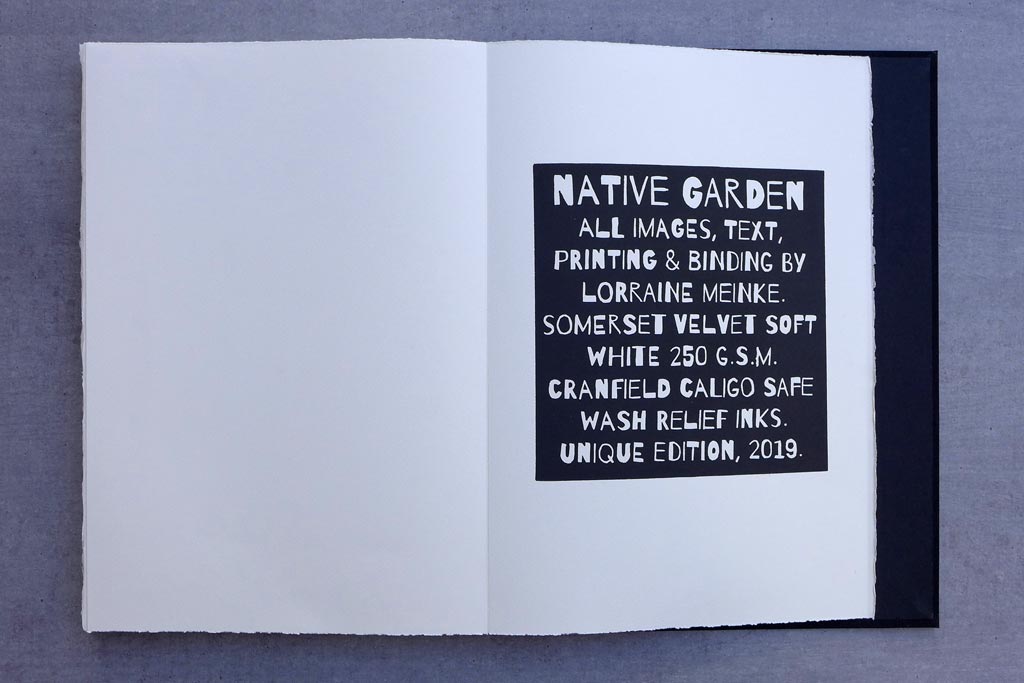 NATIVE GARDEN
ALL IMAGES, TEXT,
PRINTING & BINDING BY
LORRAINE MEINKE.
SOMERSET VELVET SOFT
WHITE 250 G.S.M.
CRANFIELD CALIGO SAFE
WASH RELIEF INKS.
UNIQUE EDITION, 2019.